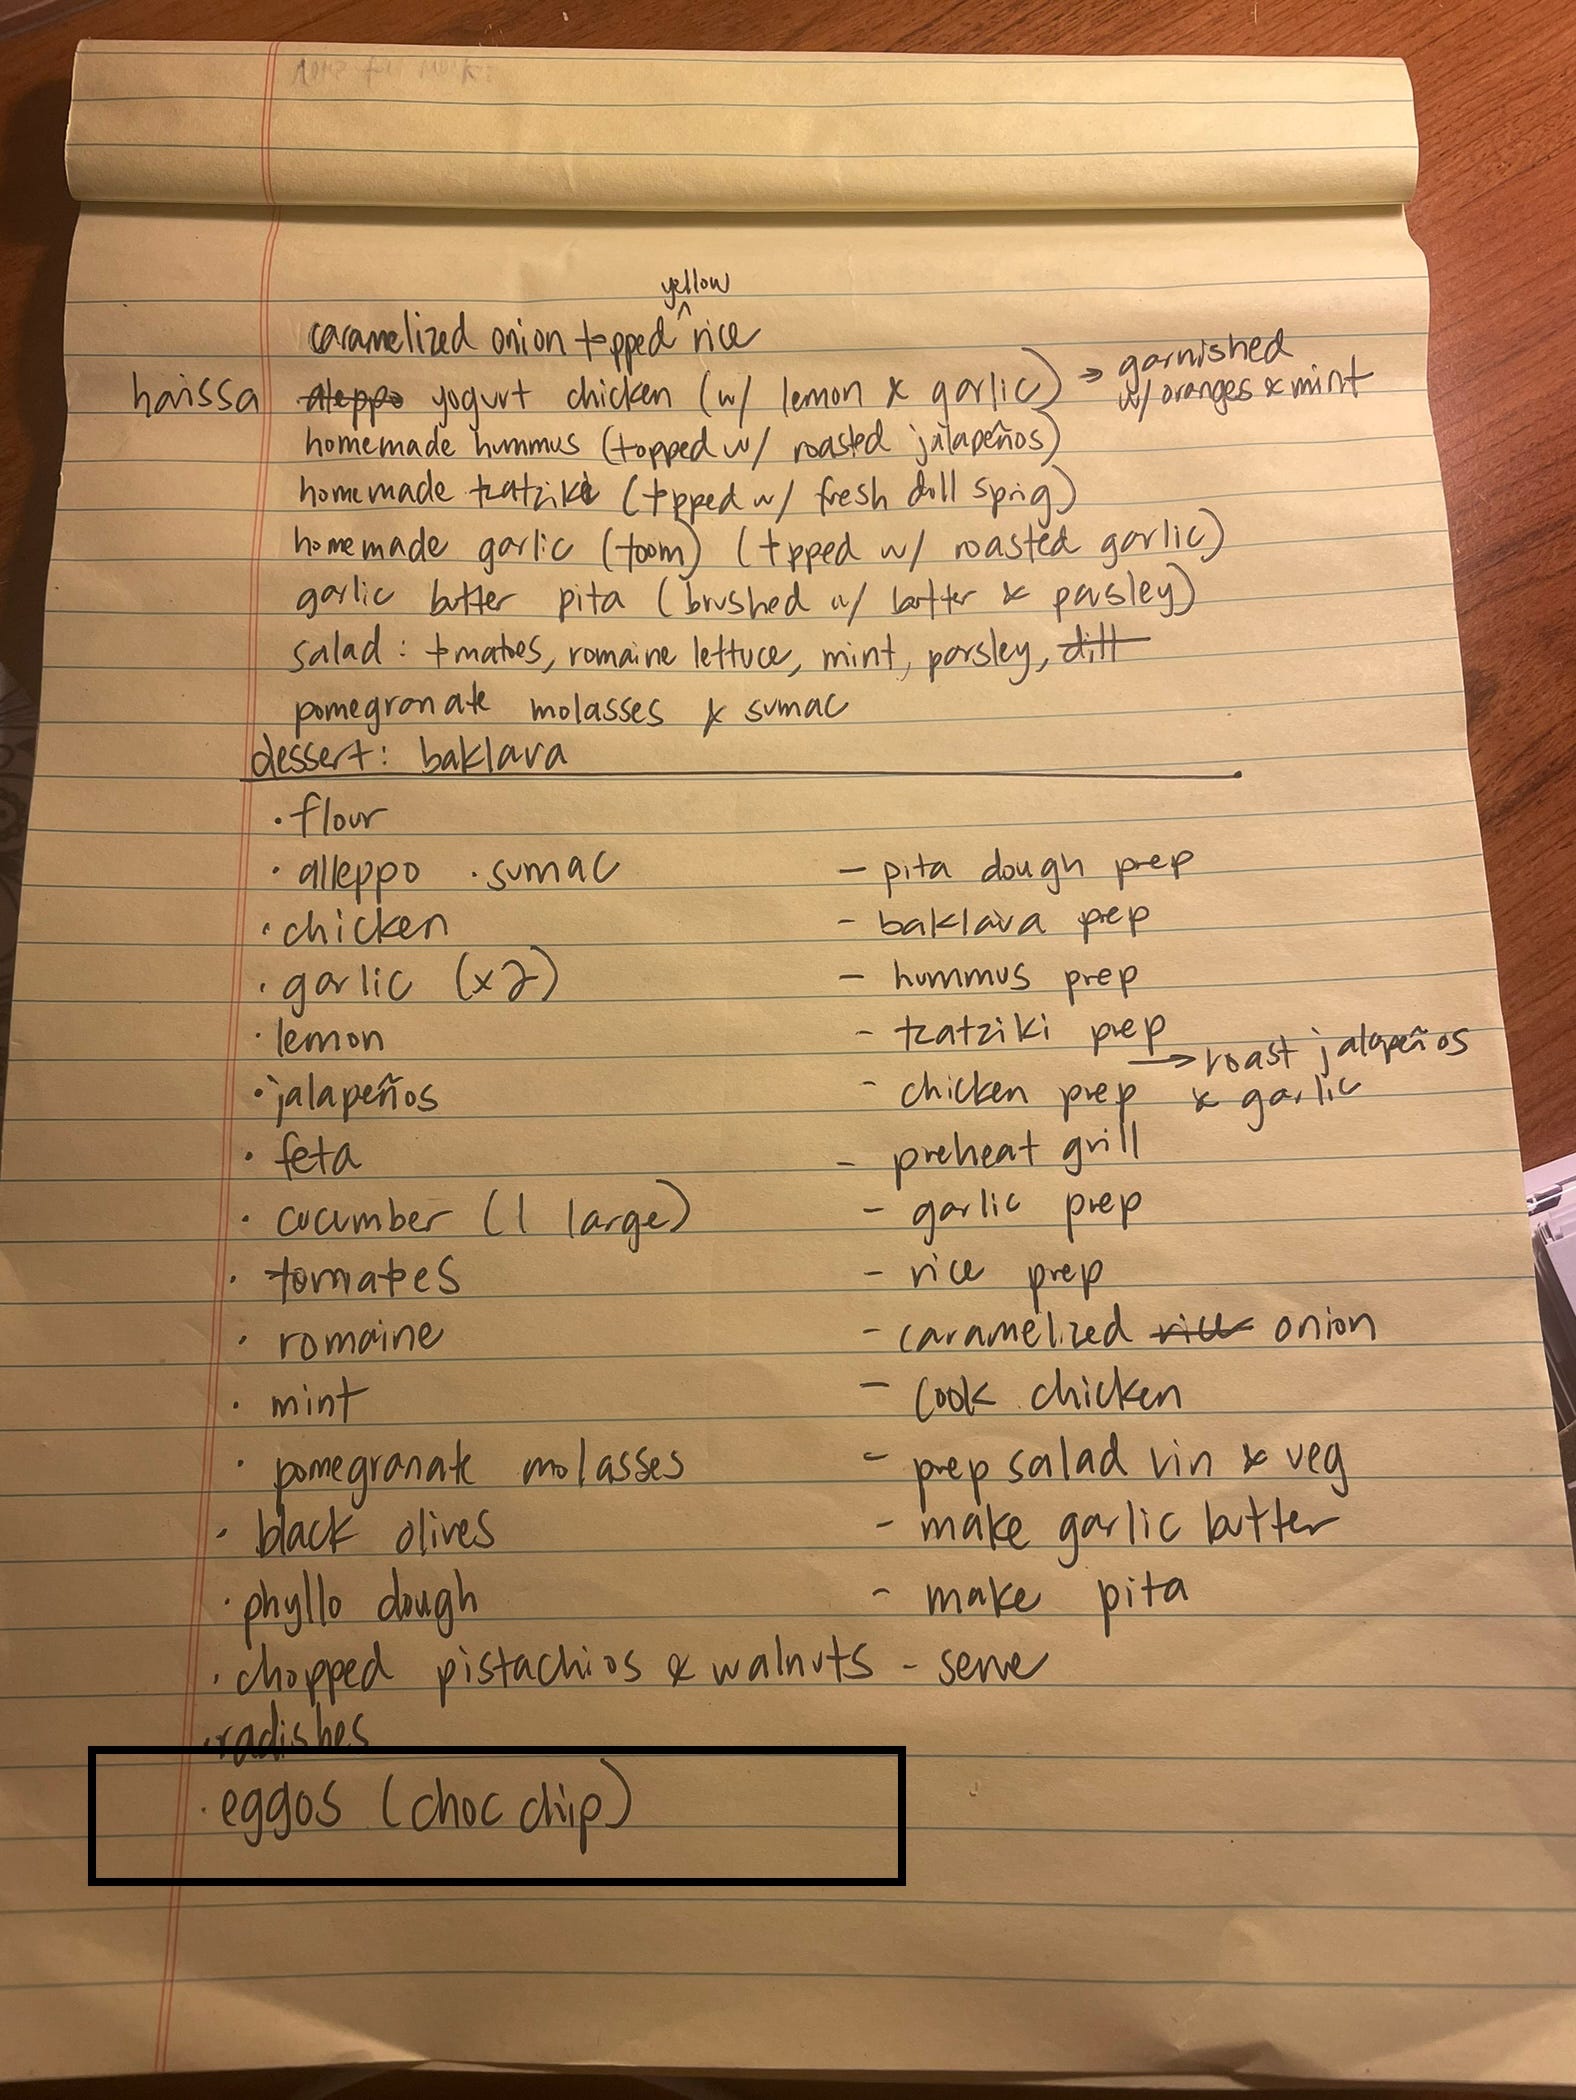 yellow
caramelized onion topped ^ rice
harissa aleppo yogurt chicken (w/ lemon & garlic) → garnished
w/ oranges & mint
homemade hummus (topped w/ roasted jalapeños)
homemade tzatziki (topped w/ fresh dill sprig)
homemade garlic (toom) (topped w/ roasted garlic)
garlic butter pita (brushed w/ butter & parsley)
salad: tomatoes, romaine lettuce, mint, parsley, dill
pomegranate molasses & sumac
dessert: baklava
• flour
• alleppo • sumac
• chicken
• garlic (x2)
• lemon
• jalapeños
• feta
• cucumber (1 large)
• tomatoes
• romaine
• mint
• pomegranate molasses
• black olives
• phyllo dough
• chopped pistachios & walnuts
• radishes
• eggos (choc chip)
- pita dough prep
- baklava prep
- hummus prep
- tzatziki prep
→ roast jalapeños
& garlic
- chicken prep
- preheat grill
- garlic prep
- rice prep
- caramelized rice onion
- cook chicken
- prep salad vin & veg
- make garlic butter
- make pita
- serve